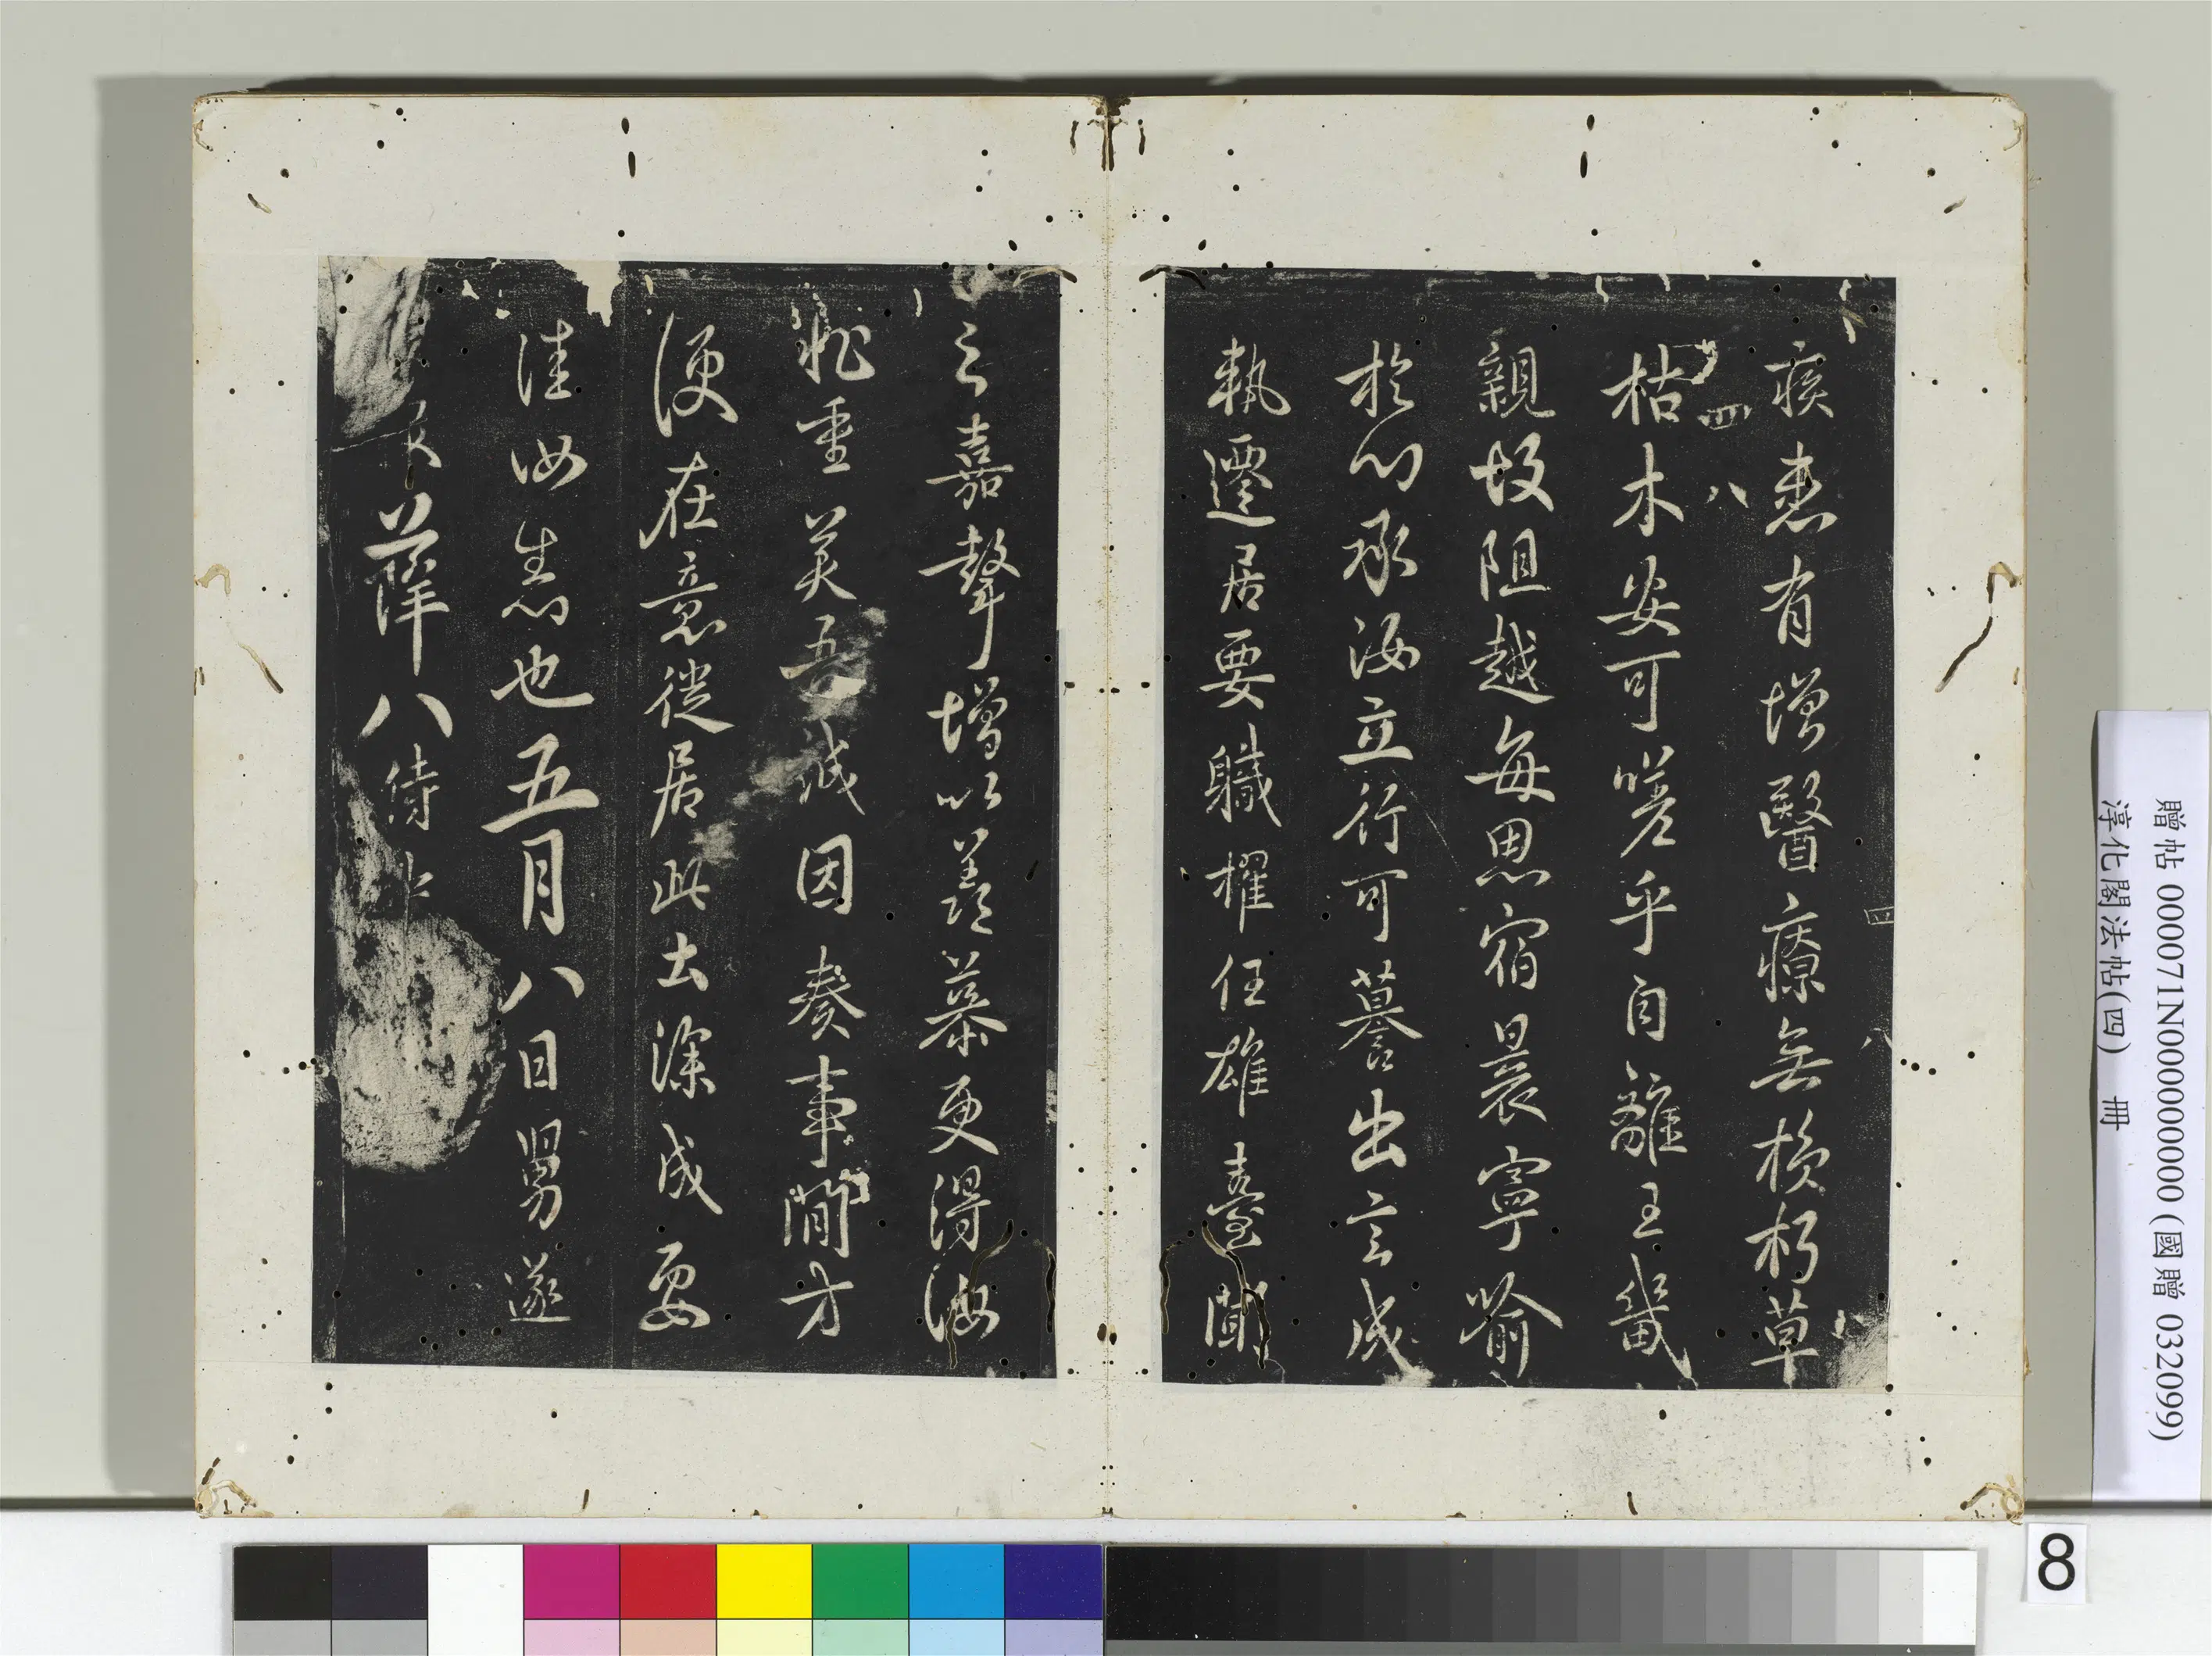 疾患有增醫療無損朽草
枯木安可嗟乎自離王畿
四 八
親故阻越每思宿晨寧喻
於心承汝立行可

出言成
執遷居要職擢任雄臺聞
之嘉聲增以羨慕更得汝
重羨吾誠因奏事閒方
便在意從居此土深成要
佳汝生志也五月八日舅遂
良
薛八侍中
四 八
贈帖 000071N000000000 (國贈 032099)
淳化閣法帖(四) 冊
8